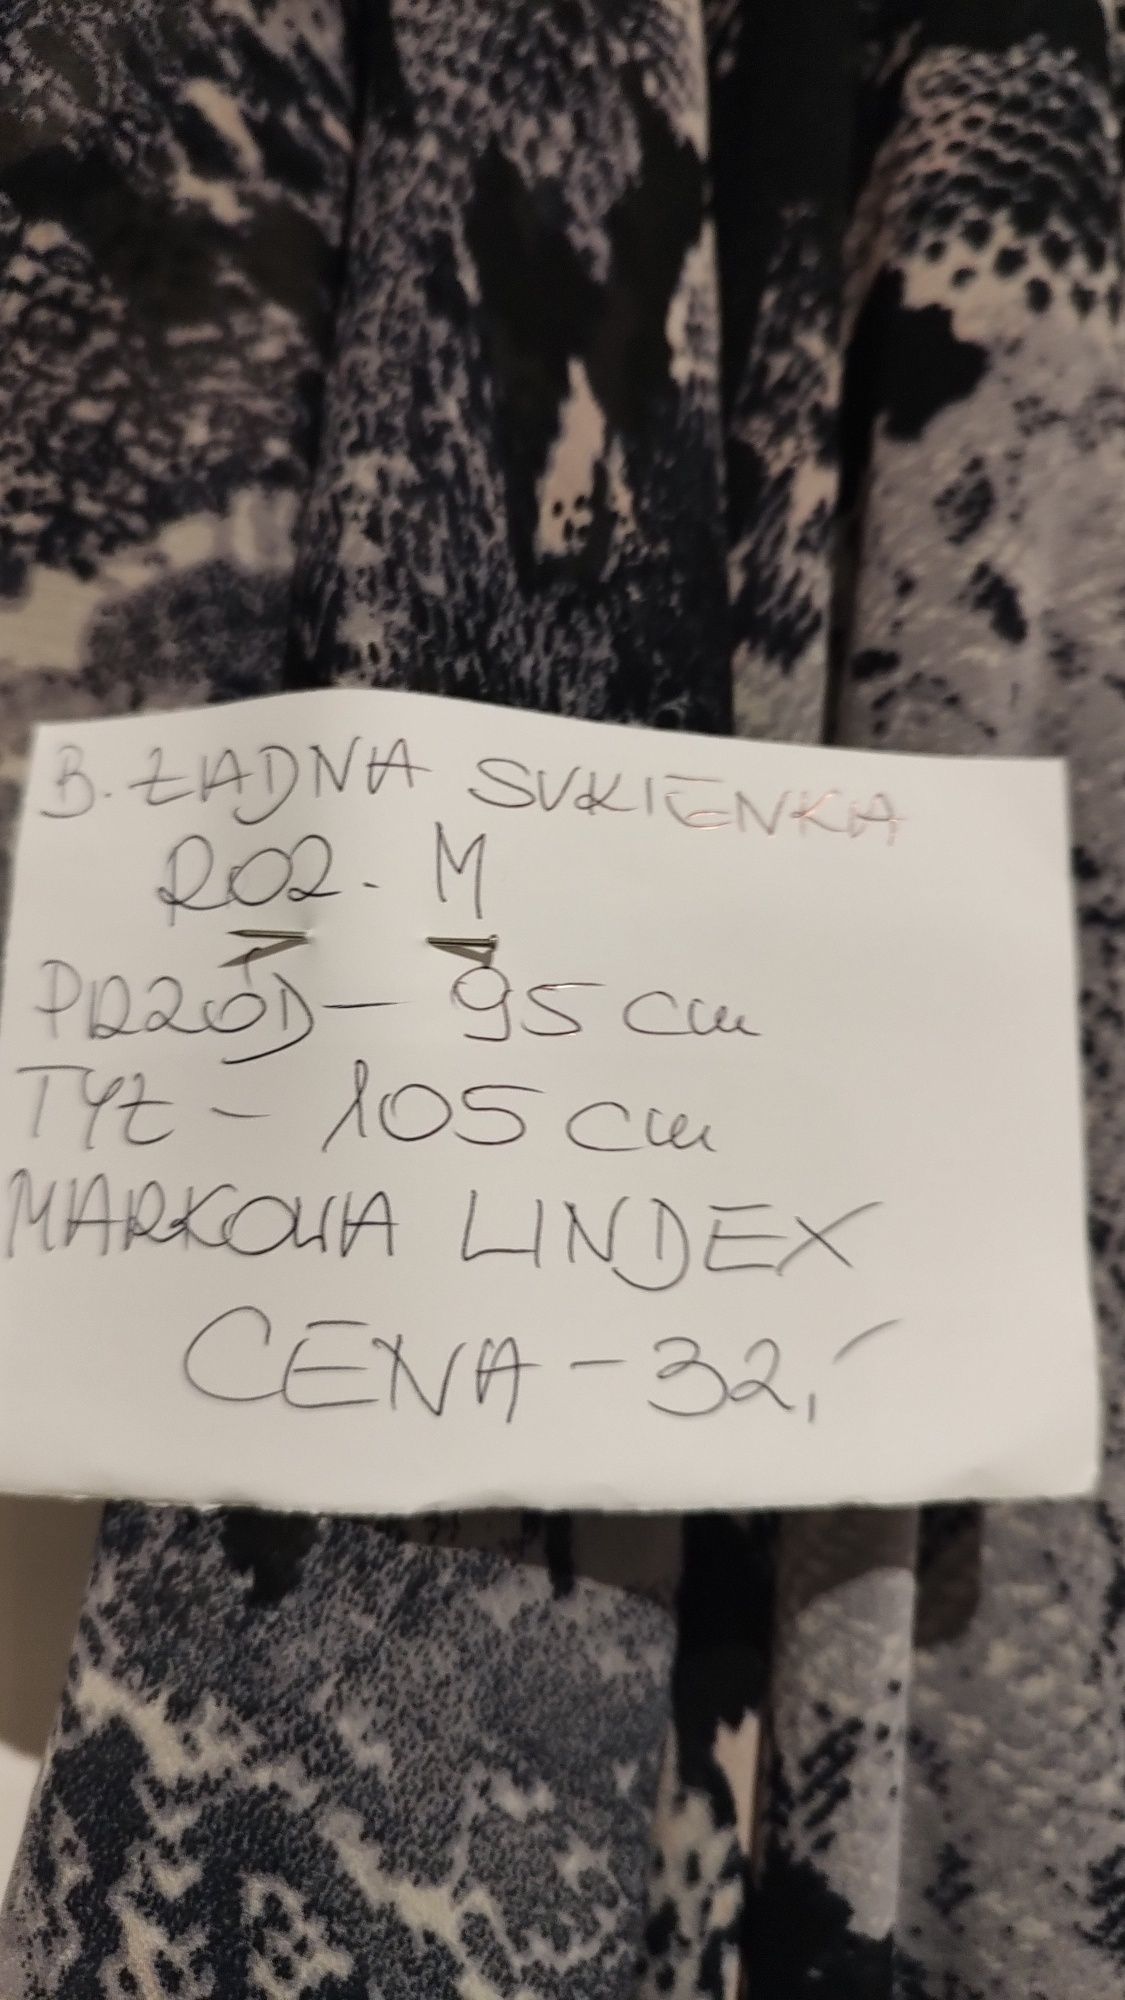 B. ŁADNA SUKIENKA
ROZ. M
PRZÓD - 95 cm
TYŁ - 105 cm
MARKOWA LINDEX
CENA - 32,-